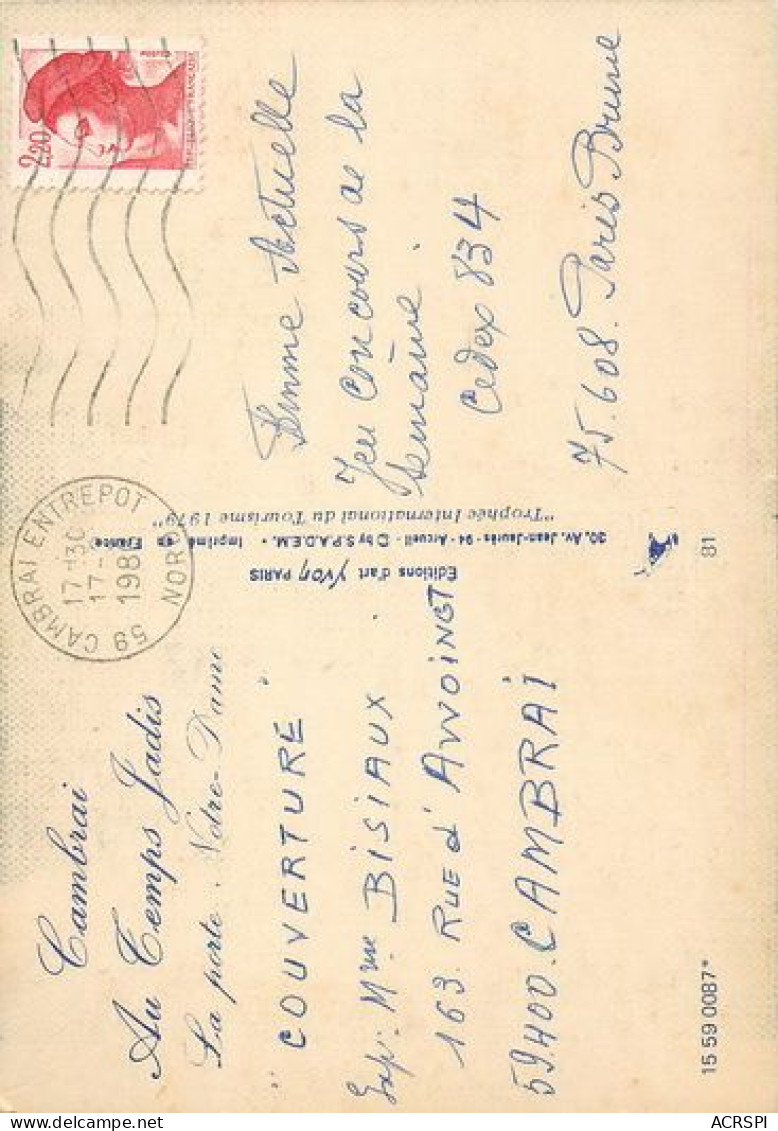 Cambrai
Au Temps Jadis
La porte Notre-Dame
" COUVERTURE "
Exp: Mme BISIAUX
163. RUE d'AWOINGT
59.400. CAMBRAI
15 59 0087*
Editions d'art Yvon PARIS
30, Av. Jean-Jaurès - 94 - Arcueil - © by S.P.A.D.E.M. • Imprimé en France
"Trophée International du Tourisme 1979"
81
59 CAMBRAI ENTREPOT
NORD
17H30
17-
198
2,20
POSTES
REPUBLIQUE FRANÇAISE
Femme Actuelle
Jeu concours de la
Semaine.
Cedex 834
75.608. Paris Brune
ACRSPI